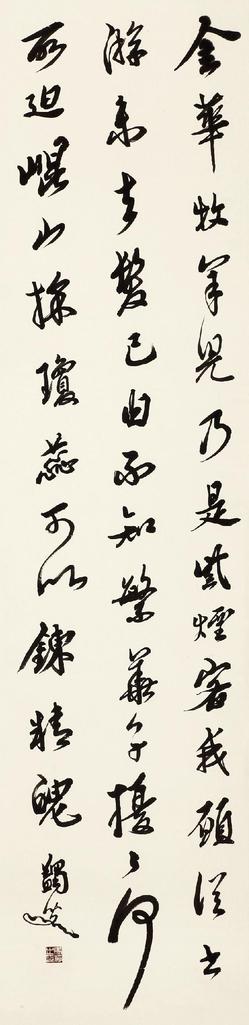 金華牧羊兒乃是紫煙客我願從之
游未去髮已白不知繁華子擾〻何
所迫崐山採瓊蕊可以鍊精魄
蠲叟